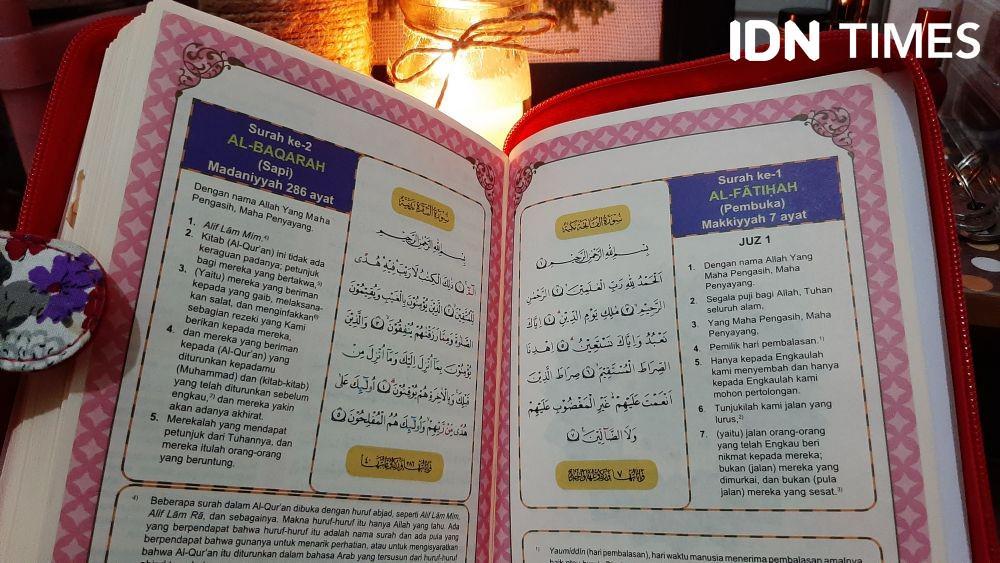 IDN TIMES
Surah ke-1
AL-FĀTIHAH
(Pembuka)
Makkiyyah 7 ayat
JUZ 1
1. Dengan nama Allah Yang
Maha Pengasih, Maha
Penyayang.
2. Segala puji bagi Allah, Tuhan
seluruh alam,
3. Yang Maha Pengasih, Maha
Penyayang,
4. Pemilik hari pembalasan.¹⁾
5. Hanya kepada Engkaulah
kami menyembah dan hanya
kepada Engkaulah kami
mohon pertolongan.
6. Tunjukilah kami jalan yang
lurus,²⁾
7. (yaitu) jalan orang-orang
yang telah Engkau beri
nikmat kepada mereka;
bukan (jalan) mereka yang
dimurkai, dan bukan (pula
jalan) mereka yang sesat.³⁾
سُوْرَةُ الْفَاتِحَةِ مَكِّيَّة
بِسْمِ اللّٰهِ الرَّحْمٰنِ الرَّحِيْمِ ۝١
اَلْحَمْدُ لِلّٰهِ رَبِّ الْعٰلَمِيْنَۙ ۝٢ الرَّحْمٰنِ
الرَّحِيْمِۙ ۝٣ مٰلِكِ يَوْمِ الدِّيْنِۗ ۝٤ اِيَّاكَ
نَعْبُدُ وَاِيَّاكَ نَسْتَعِيْنُۗ ۝٥ اِهْدِنَا
الصِّرَاطَ الْمُسْتَقِيْمَۙ ۝٦ صِرَاطَ الَّذِيْنَ
اَنْعَمْتَ عَلَيْهِمْ ەۙ غَيْرِ الْمَغْضُوْبِ عَلَيْهِمْ
وَلَا الضَّاۤلِّيْنَ ۝٧
¹⁾ Yaumiddīn (hari pembalasan), hari waktu manusia menerima pembalasan amalnya
Surah ke-2
AL-BAQARAH
(Sapi)
Madaniyyah 286 ayat
Dengan nama Allah Yang Maha
Pengasih, Maha Penyayang.
1. Alif Lām Mīm.⁴⁾
2. Kitab (Al-Qur'an) ini tidak ada
keraguan padanya; petunjuk
bagi mereka yang bertakwa,⁵⁾
3. (Yaitu) mereka yang beriman
kepada yang gaib, melaksana-
kan salat, dan menginfakkan⁶⁾
sebagian rezeki yang Kami
berikan kepada mereka,
4. dan mereka yang beriman
kepada (Al-Qur'an) yang
diturunkan kepadamu
(Muhammad) dan (kitab-kitab)
yang telah diturunkan sebelum
engkau,⁷⁾ dan mereka yakin
akan adanya akhirat.
5. Merekalah yang mendapat
petunjuk dari Tuhannya, dan
mereka itulah orang-orang
yang beruntung.
سُوْرَةُ الْبَقَرَةِ مَدَنِيَّة
بِسْمِ اللّٰهِ الرَّحْمٰنِ الرَّحِيْمِ
الۤمّۤ ۝١ ذٰلِكَ الْكِتٰبُ لَا رَيْبَ فِيْهِ هُدًى
لِّلْمُتَّقِيْنَۙ ۝٢ الَّذِيْنَ يُؤْمِنُوْنَ بِالْغَيْبِ وَيُقِيْمُوْنَ
الصَّلٰوةَ وَمِمَّا رَزَقْنٰهُمْ يُنْفِقُوْنَۙ ۝٣ وَالَّذِيْنَ
يُؤْمِنُوْنَ بِمَآ اُنْزِلَ اِلَيْكَ وَمَآ اُنْزِلَ مِنْ
قَبْلِكَۚ وَبِالْاٰخِرَةِ هُمْ يُوْقِنُوْنَۗ ۝٤ اُولٰۤىِٕكَ عَلٰى
هُدًى مِّنْ رَّبِّهِمْ وَاُولٰۤىِٕكَ هُمُ الْمُفْلِحُوْنَ ۝٥
⁴⁾ Beberapa surah dalam Al-Qur'an dibuka dengan huruf abjad, seperti Alif Lām Mīm,
Alif Lām Rā, dan sebagainya. Makna huruf-huruf itu hanya Allah yang tahu. Ada
yang berpendapat bahwa huruf-huruf itu adalah nama surah dan ada pula yang
berpendapat bahwa gunanya untuk menarik perhatian, atau untuk mengisyaratkan
bahwa Al-Qur'an itu diturunkan dalam bahasa Arab yang tersusun dari huruf-huruf